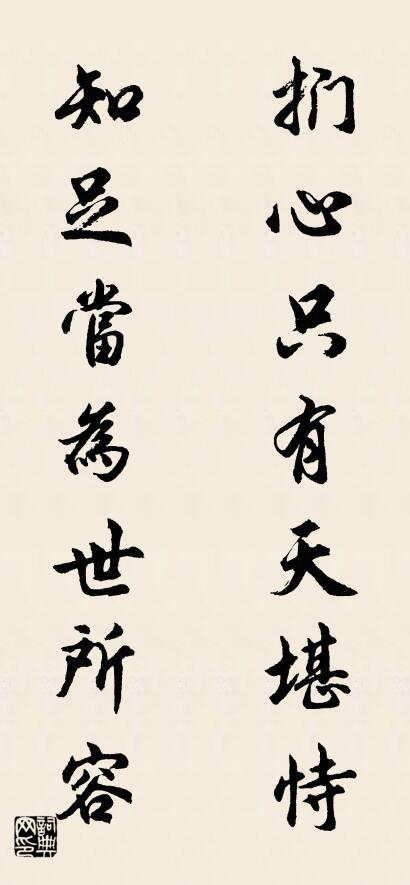 捫心只有天堪恃
知足當為世所容
詞典網印